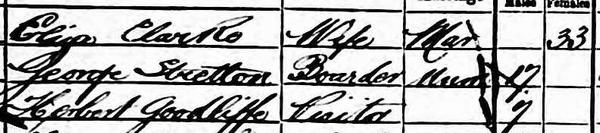 Males Females
Eliza Clarke Wife Mar 33
George Stretton Boarder Unm 17
Herbert Goodliffe Visitor 7